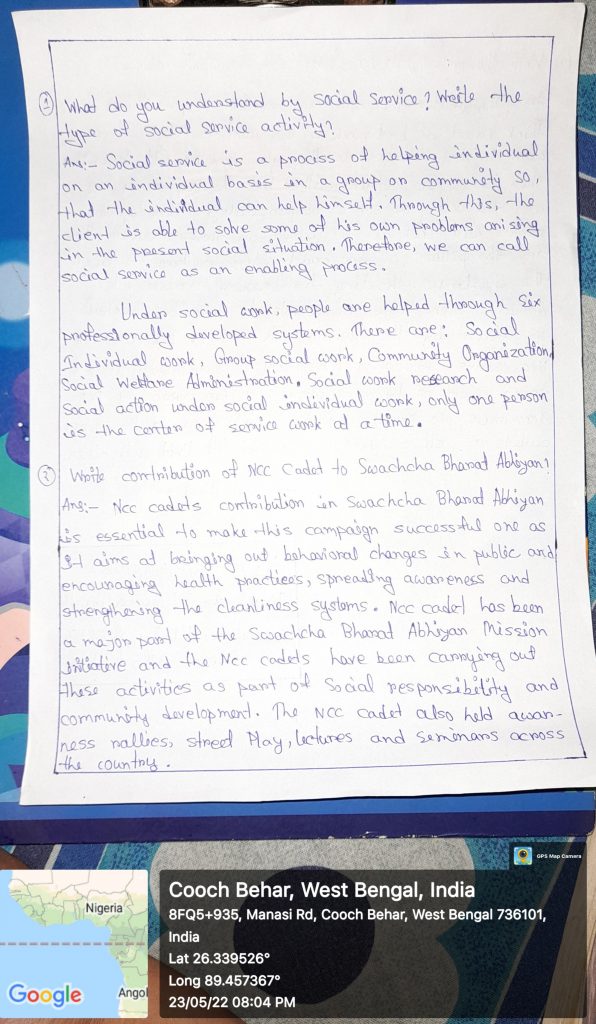 ① What do you understand by social service? Write the
type of social service activity?
Ans:- Social service is a process of helping individual
on an individual basis in a group or community so,
that the individual can help himself. Through this, the
client is able to solve some of his own problems arising
in the present social situation. Therefore, we can call
social service as an enabling process.
Under social work, people are helped through six
professionally developed systems. There are: Social
Individual work, Group social work, Community Organization,
Social Welfare Administration. Social work research and
Social action under social individual work, only one person
is the center of service work at a time.
② Write contribution of NCC Cadet to Swachcha Bharat Abhiyan?
Ans:- NCC cadets contribution in Swachcha Bharat Abhiyan
is essential to make this campaign successful one as
It aims at bringing out behavioral changes in public and
encouraging health practices, spreading awareness and
strengthening the cleanliness systems. NCC cadet has been
a major part of the Swachcha Bharat Abhiyan Mission
initiative and the NCC cadets have been carrying out
these activities as part of Social responsibility and
community development. The NCC cadet also held awar-
ness rallies, street Play, lectures and seminars across
the country.
GPS Map Camera
Cooch Behar, West Bengal, India
8FQ5+935, Manasi Rd, Cooch Behar, West Bengal 736101,
India
Lat 26.339526°
Long 89.457367°
23/05/22 08:04 PM
Nigeria
Angol
Google